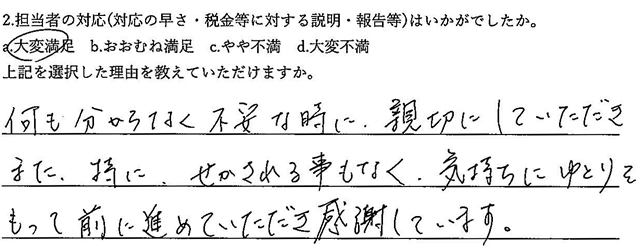 2.担当者の対応(対応の早さ・税金等に対する説明・報告等)はいかがでしたか。
a.大変満足　b.おおむね満足　c.やや不満　d.大変不満
上記を選択した理由を教えていただけますか。
何も分からなく不安な時に、親切にしていただき
また、特に、せかされる事もなく、気持ちにゆとりを
もって前に進めていただき感謝しています。